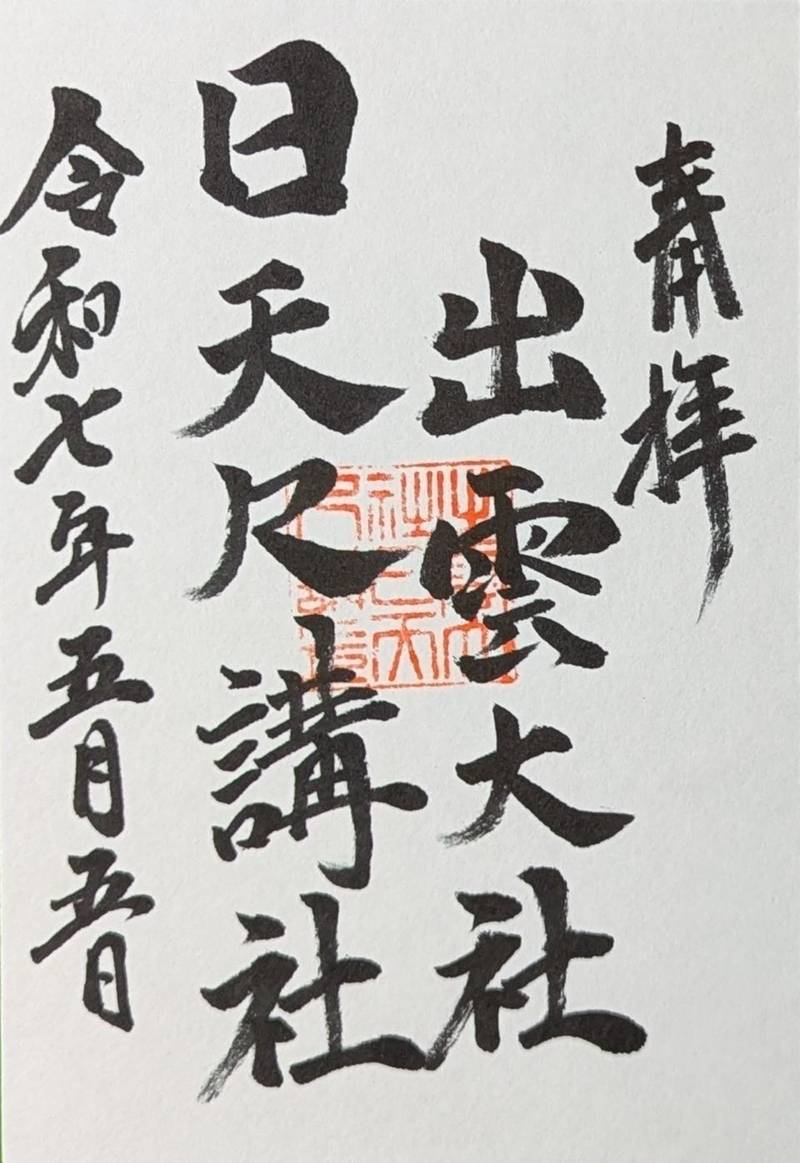 奉拝
出雲大社
日天尺講社
令和七年五月五日